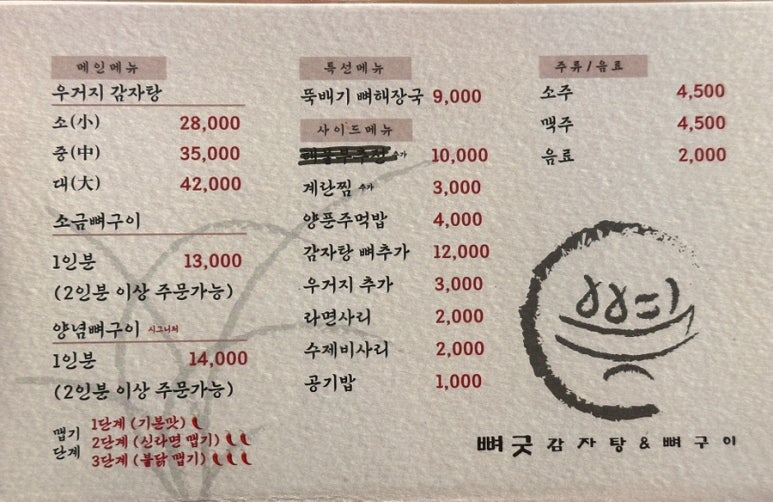 메인메뉴
우거지 감자탕
소(小) 28,000
중(中) 35,000
대(大) 42,000
소금뼈구이
1인분 13,000
(2인분 이상 주문가능)
양념뼈구이 시그니처
1인분 14,000
(2인분 이상 주문가능)
맵기 단계
1단계 (기본맛)
2단계 (신라면 맵기)
3단계 (불닭 맵기)
특선메뉴
뚝배기 뼈해장국 9,000
사이드메뉴
추가 10,000
계란찜 추가 3,000
양푼주먹밥 4,000
감자탕 뼈추가 12,000
우거지 추가 3,000
라면사리 2,000
수제비사리 2,000
공기밥 1,000
주류/음료
소주 4,500
맥주 4,500
음료 2,000
뼈굿 감자탕&뼈구이